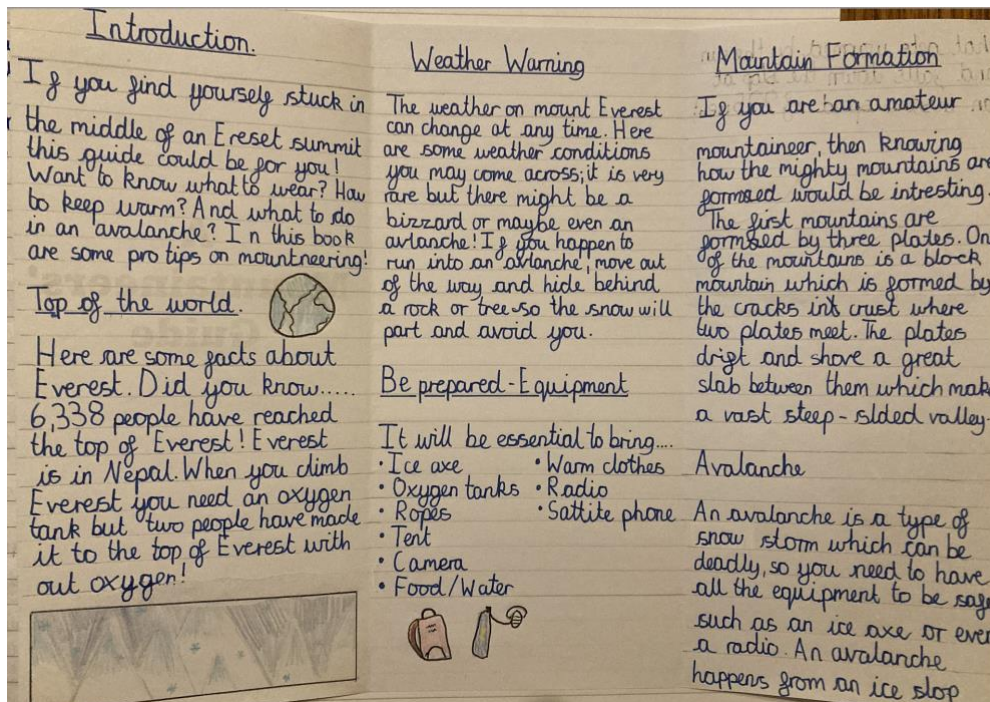 Introduction.
If you find yourself stuck in
the middle of an Ereset summit
this guide could be for you!
Want to know what to wear? How
to keep warm? And what to do
in an avalanche? In this book
are some pro tips on mountneering!
Top of the world.
Here are some facts about
Everest. Did you know.....
6,338 people have reached
the top of Everest! Everest
is in Nepal. When you climb
Everest you need an oxygen
tank but two people have made
it to the top of Everest with
out oxygen!
Weather Warning
The weather on mount Everest
can change at any time. Here
are some weather conditions
you may come across; it is very
rare but there might be a
bizzard or maybe even an
avlanche! If you happen to
run into an avlanche, move out
of the way and hide behind
a rock or tree so the snow will
part and avoid you.
Be prepared - Equipment
It will be essential to bring....
• Ice axe
• Oxygen tanks
• Ropes
• Tent
• Camera
• Food/Water
• Warm clothes
• Radio
• Sattite phone
Mountain Formation
If you are an amateur
mountaineer, then knowing
how the mighty mountains are
formed would be intresting.
The first mountains are
formed by three plates. On
of the mountains is a block
mountain which is formed by
the cracks in crust where
two plates meet. The plates
drift and shove a great
slab between them which mak
a vast steep-sided valley.
Avalanche
An avalanche is a type of
snow storm which can be
deadly, so you need to have
all the equipment to be safe
such as an ice axe or even
a radio. An avalanche
happens from an ice slop